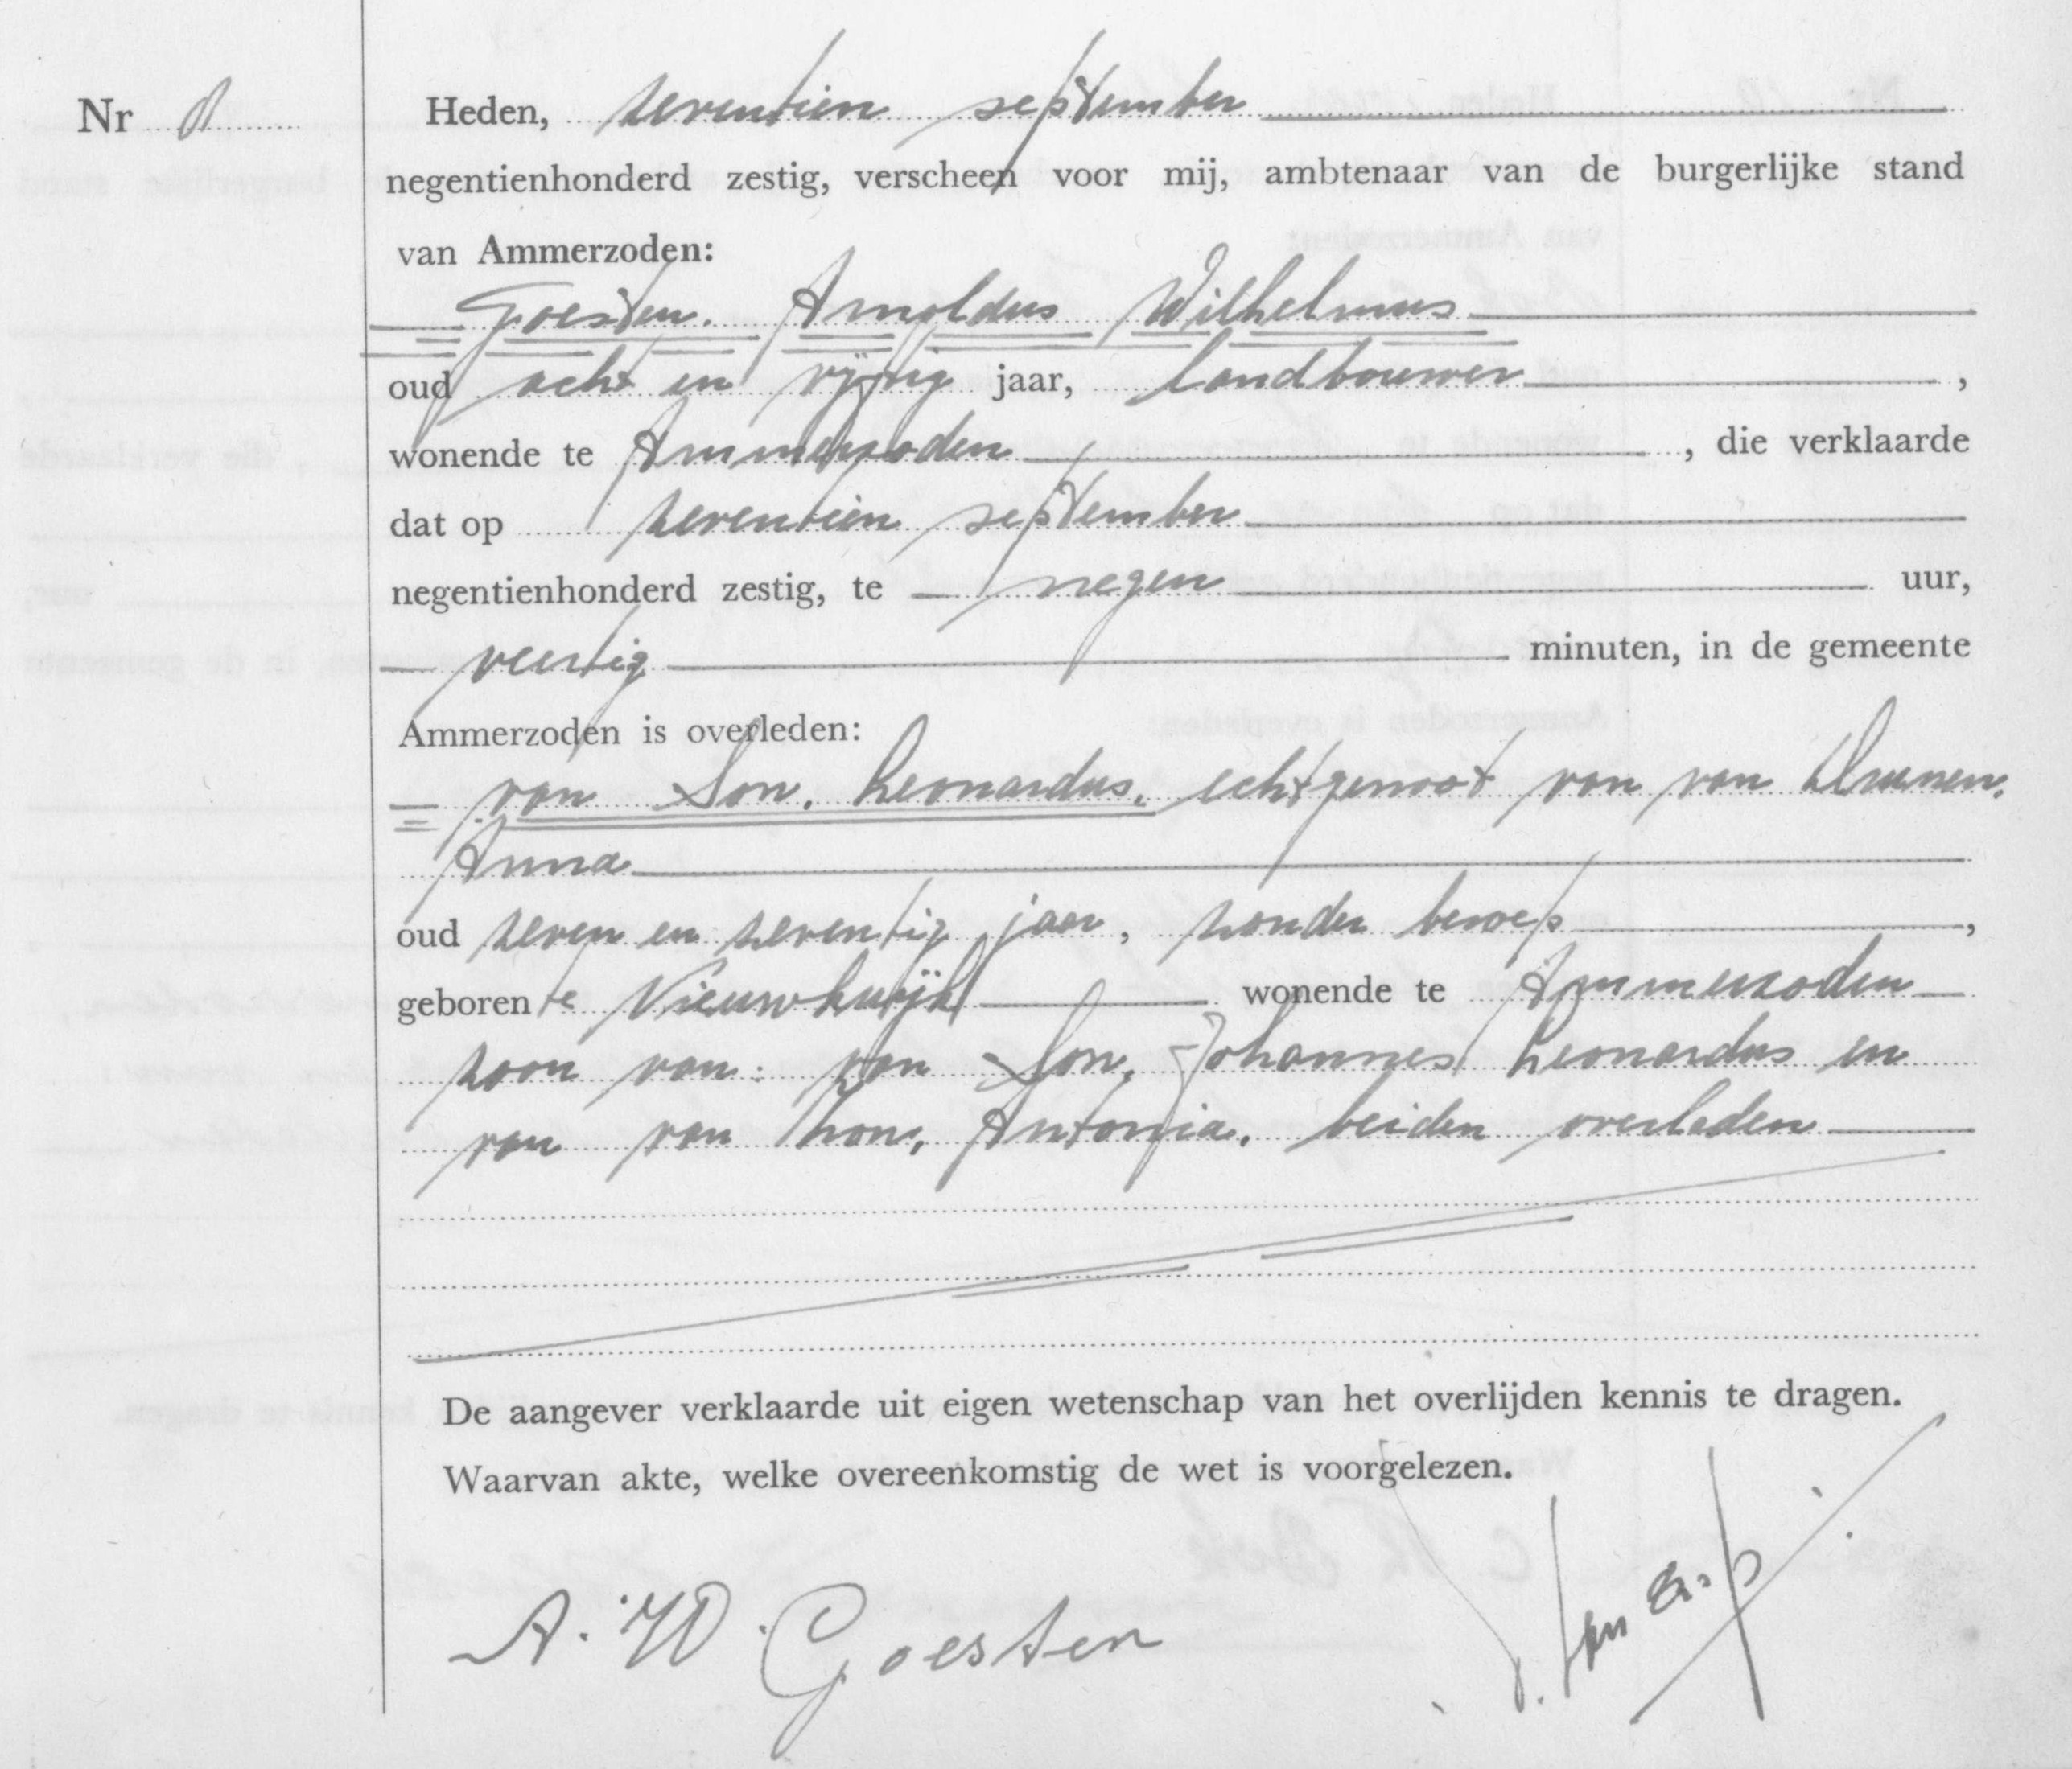 Nr 8
Heden, zeventien september
negentienhonderd zestig, verscheen voor mij, ambtenaar van de burgerlijke stand
van Ammerzoden:
Goesten, Arnoldus Wilhelmus
oud acht en vijftig jaar, landbouwer,
wonende te Ammerzoden, die verklaarde
dat op zeventien september
negentienhonderd zestig, te negen uur,
veertig minuten, in de gemeente
Ammerzoden is overleden:
van Son, Leonardus, echtgenoot van van Drunen,
Anna
oud zeven en zeventig jaar, zonder beroep,
geboren te Nieuwkuijk wonende te Ammerzoden
zoon van: van Son, Johannes Leonardus en
van van Hon, Antonia, beiden overleden
De aangever verklaarde uit eigen wetenschap van het overlijden kennis te dragen.
Waarvan akte, welke overeenkomstig de wet is voorgelezen.
A. W. Goesten